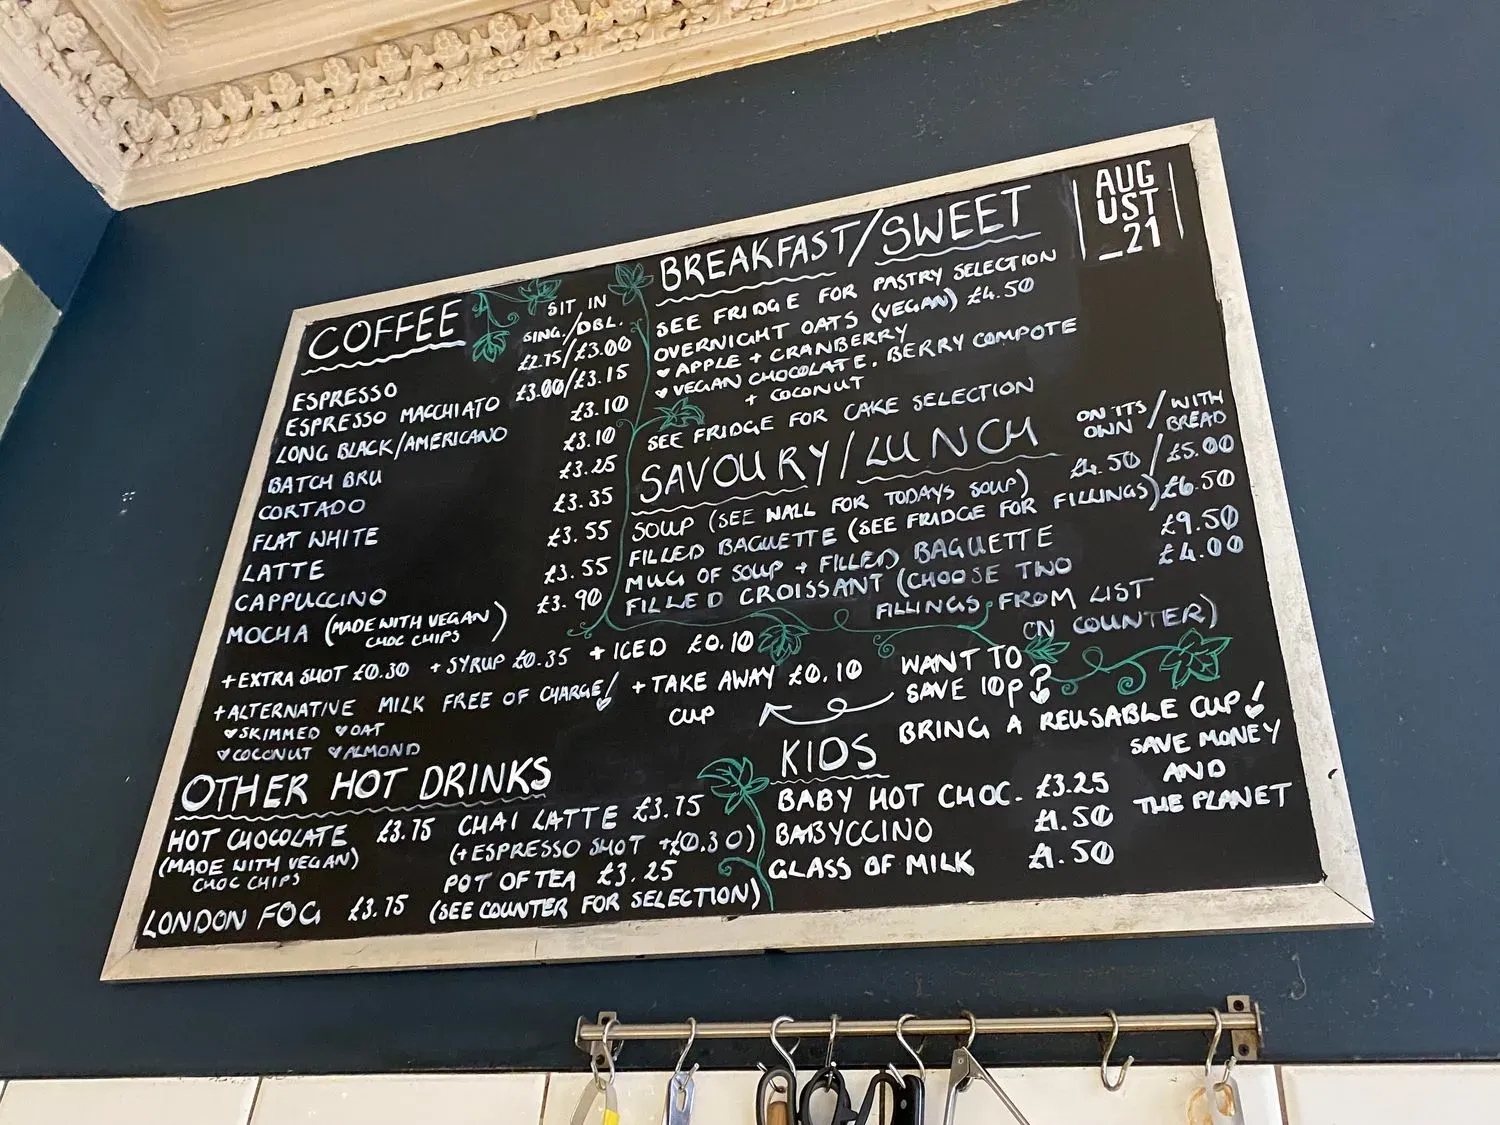 COFFEE
SIT IN
SING./DBL.
ESPRESSO £2.75/£3.00
ESPRESSO MACCHIATO £3.00/£3.15
LONG BLACK/AMERICANO £3.10
BATCH BRU £3.10
CORTADO £3.25
FLAT WHITE £3.35
LATTE £3.55
CAPPUCCINO £3.55
MOCHA (MADE WITH VEGAN £3.90
CHOC CHIPS)
+EXTRA SHOT £0.30 +SYRUP £0.35 +ICED £0.10
+ALTERNATIVE MILK FREE OF CHARGE!
♥SKIMMED ♥OAT
♥COCONUT ♥ALMOND
+TAKE AWAY £0.10
CUP
WANT TO
SAVE 10P?
BRING A REUSABLE CUP!
SAVE MONEY
AND
THE PLANET
OTHER HOT DRINKS
HOT CHOCOLATE £3.75
(MADE WITH VEGAN)
CHOC CHIPS
LONDON FOG £3.75
CHAI LATTE £3.75
(+ESPRESSO SHOT +£0.30)
POT OF TEA £3.25
(SEE COUNTER FOR SELECTION)
BREAKFAST/SWEET
AUG
UST
_21
SEE FRIDGE FOR PASTRY SELECTION
OVERNIGHT OATS (VEGAN) £4.50
♥APPLE + CRANBERRY
♥VEGAN CHOCOLATE, BERRY COMPOTE
+ COCONUT
SEE FRIDGE FOR CAKE SELECTION
SAVOURY/LUNCH
ON ITS / WITH
OWN BREAD
SOUP (SEE WALL FOR TODAYS SOUP) £4.50/£5.00
FILLED BAGUETTE (SEE FRIDGE FOR FILLINGS) £6.50
MUG OF SOUP + FILLED BAGUETTE £9.50
FILLED CROISSANT (CHOOSE TWO £4.00
FILLINGS FROM LIST
ON COUNTER)
KIDS
BABY HOT CHOC. £3.25
BABYCCINO £1.50
GLASS OF MILK £1.50